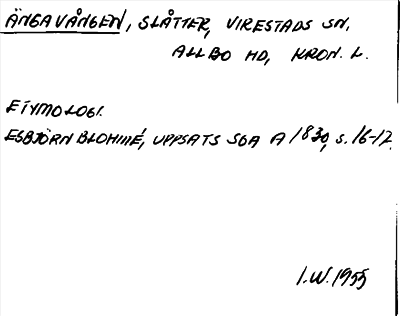 ÄNGAVÅNGEN, SLÅTTER, VIRESTADS SN,
ALLBO HD, KRON. L.
ETYMOLOGI.
ESBJÖRN BLOHMÉ, UPPSATS SGA A 1830, S. 16-17.
I.W. 1955